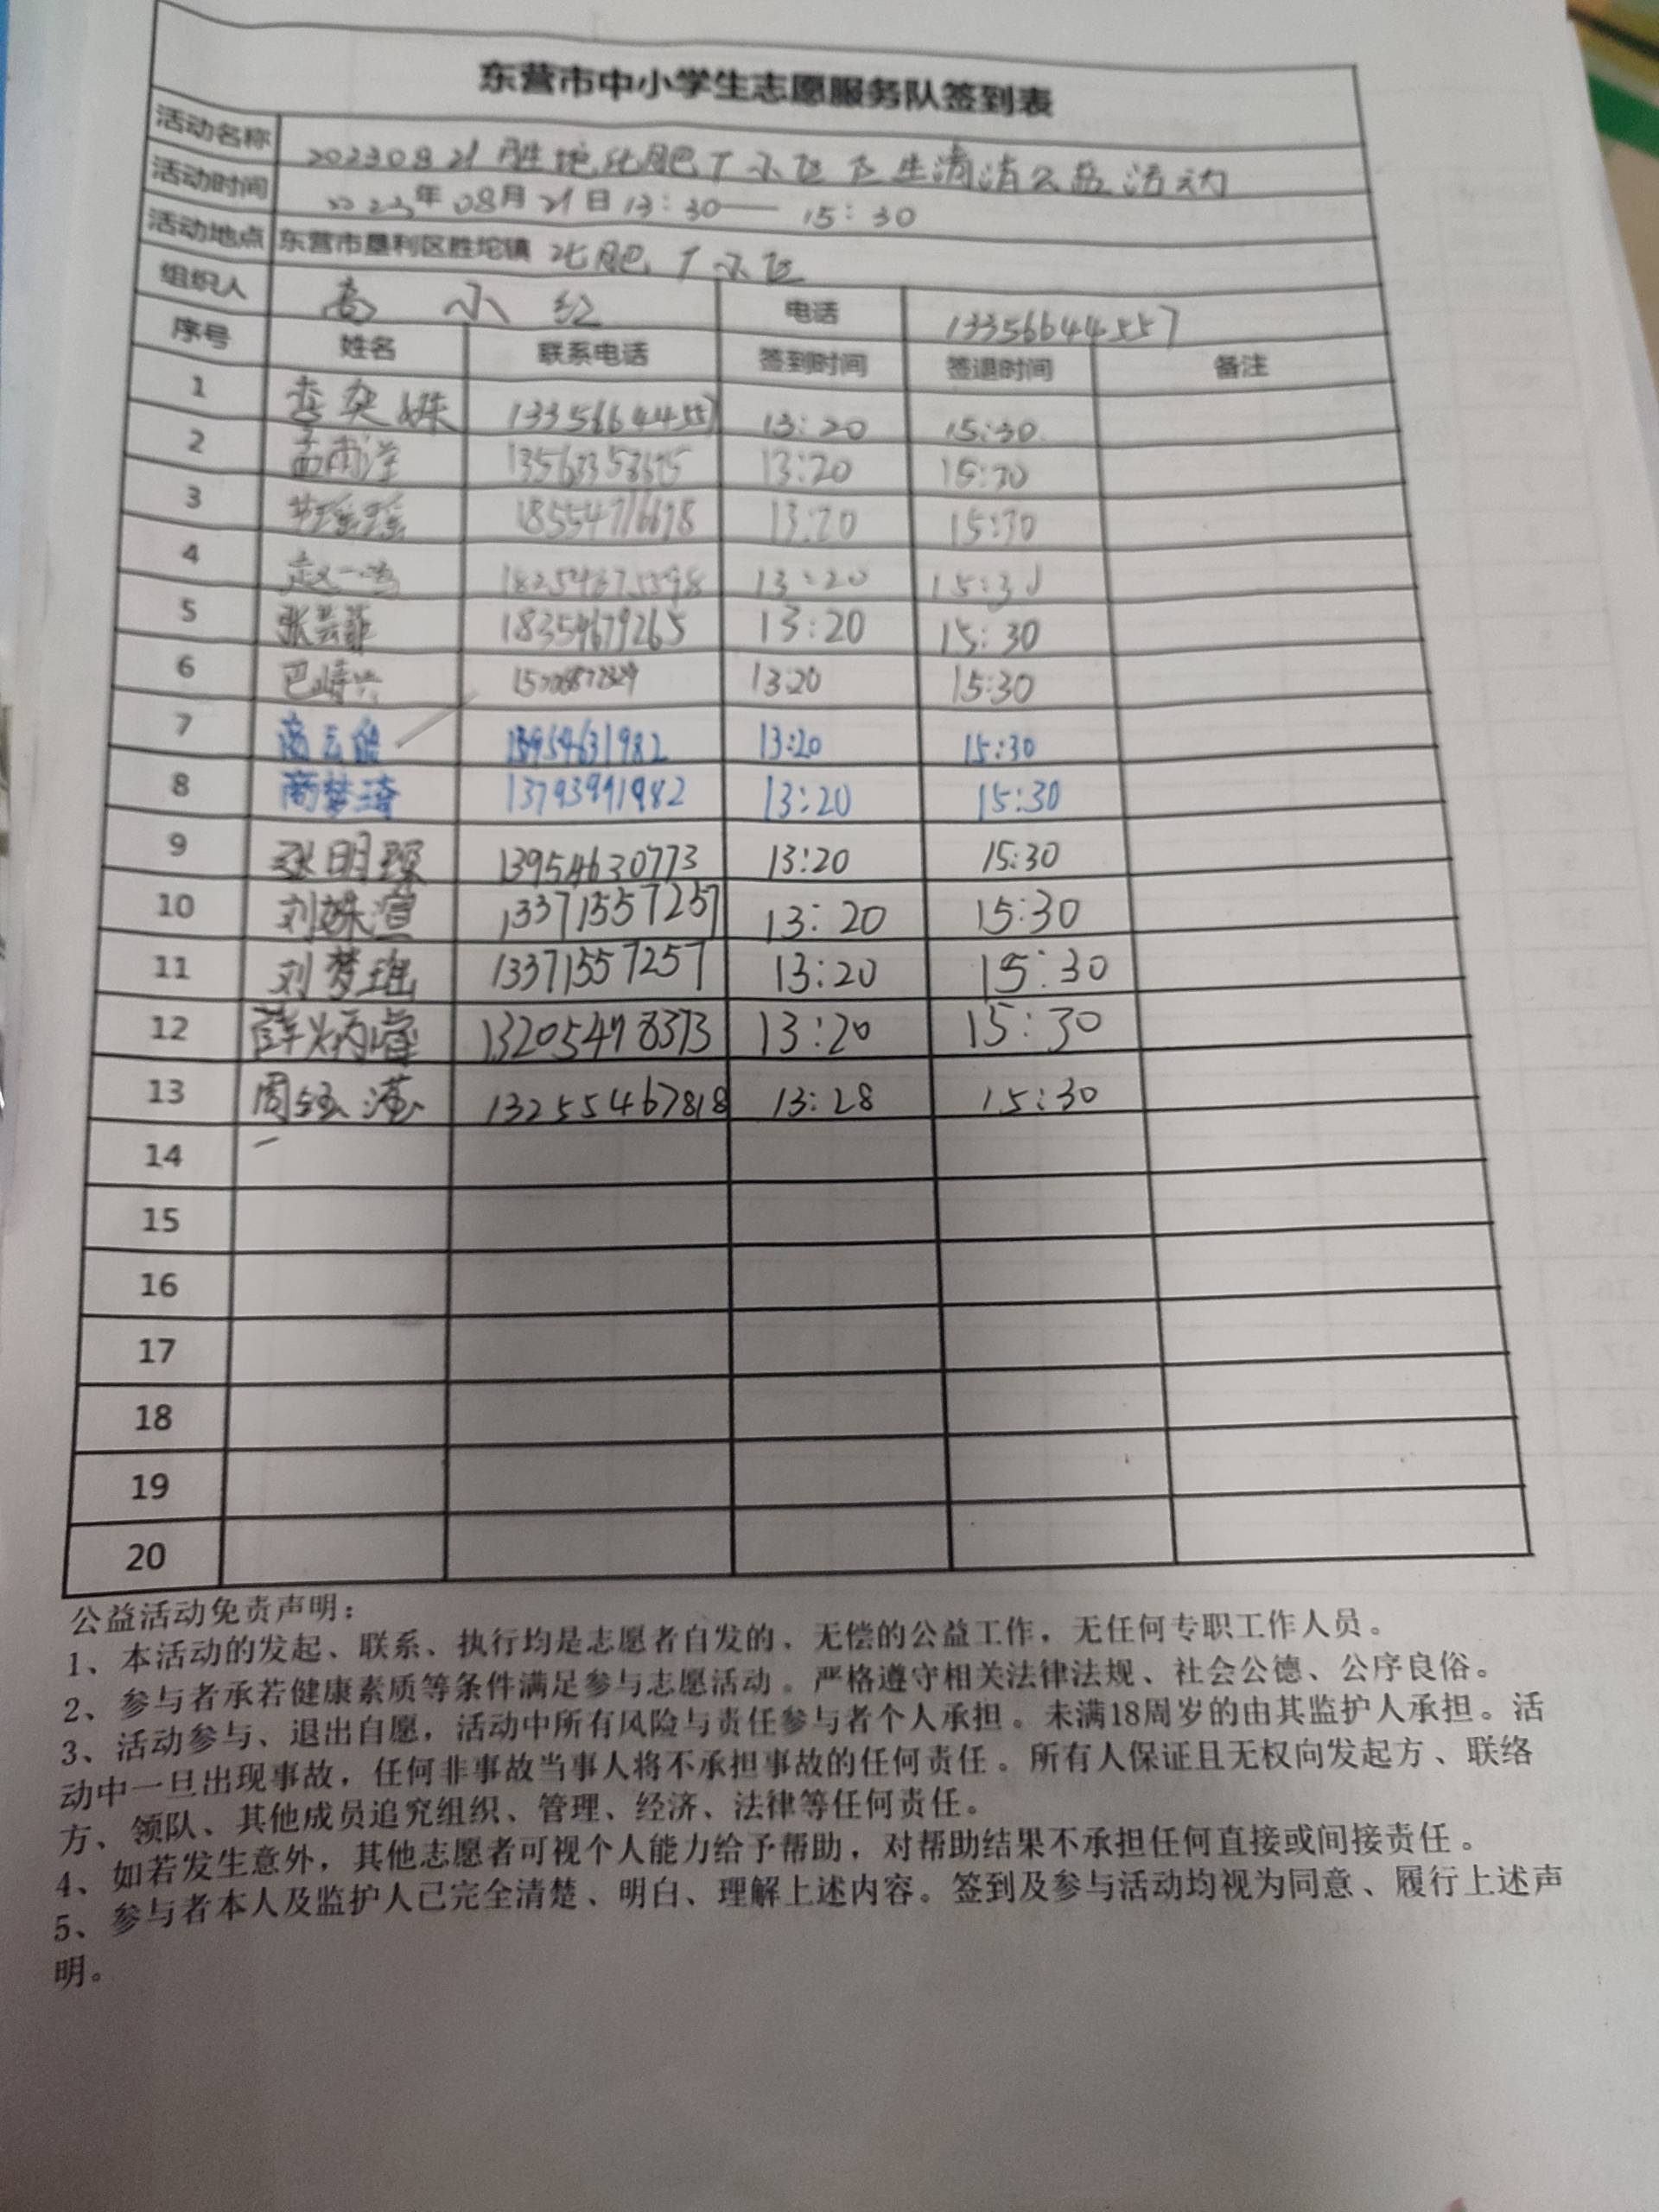 东营市中小学生志愿服务队签到表
活动名称 20230821胜坨化肥厂小区卫生清洁公益活动
活动时间 2023年08月21日13:30—15:30
活动地点 东营市垦利区胜坨镇 化肥厂小区
组织人 高小红 电话 13356644557
序号 姓名 联系电话 签到时间 签退时间 备注
1 13356644557 13:20 15:30
2 孟雨洋 13:20 15:30
3 18554716678 13:20 15:30
4 赵一鸣 18254675598 13:20 15:30
5 张芸菲 18354679265 13:20 15:30
6 13:20 15:30
7 13954631982 13:20 15:30
8 商梦琦 13793991982 13:20 15:30
9 张明琛 13954630773 13:20 15:30
10 刘姝萱 13371557257 13:20 15:30
11 刘梦瑶 13371557257 13:20 15:30
12 薛炳睿 13205478373 13:20 15:30
13 13255467818 13:28 15:30
14
15
16
17
18
19
20
公益活动免责声明：
1、本活动的发起、联系、执行均是志愿者自发的、无偿的公益工作，无任何专职工作人员。
2、参与者承若健康素质等条件满足参与志愿活动。严格遵守相关法律法规、社会公德、公序良俗。
3、活动参与、退出自愿，活动中所有风险与责任参与者个人承担。未满18周岁的由其监护人承担。活
动中一旦出现事故，任何非事故当事人将不承担事故的任何责任。所有人保证且无权向发起方、联络
方、领队、其他成员追究组织、管理、经济、法律等任何责任。
4、如若发生意外，其他志愿者可视个人能力给予帮助，对帮助结果不承担任何直接或间接责任。
5、参与者本人及监护人已完全清楚、明白、理解上述内容。签到及参与活动均视为同意、履行上述声
明。